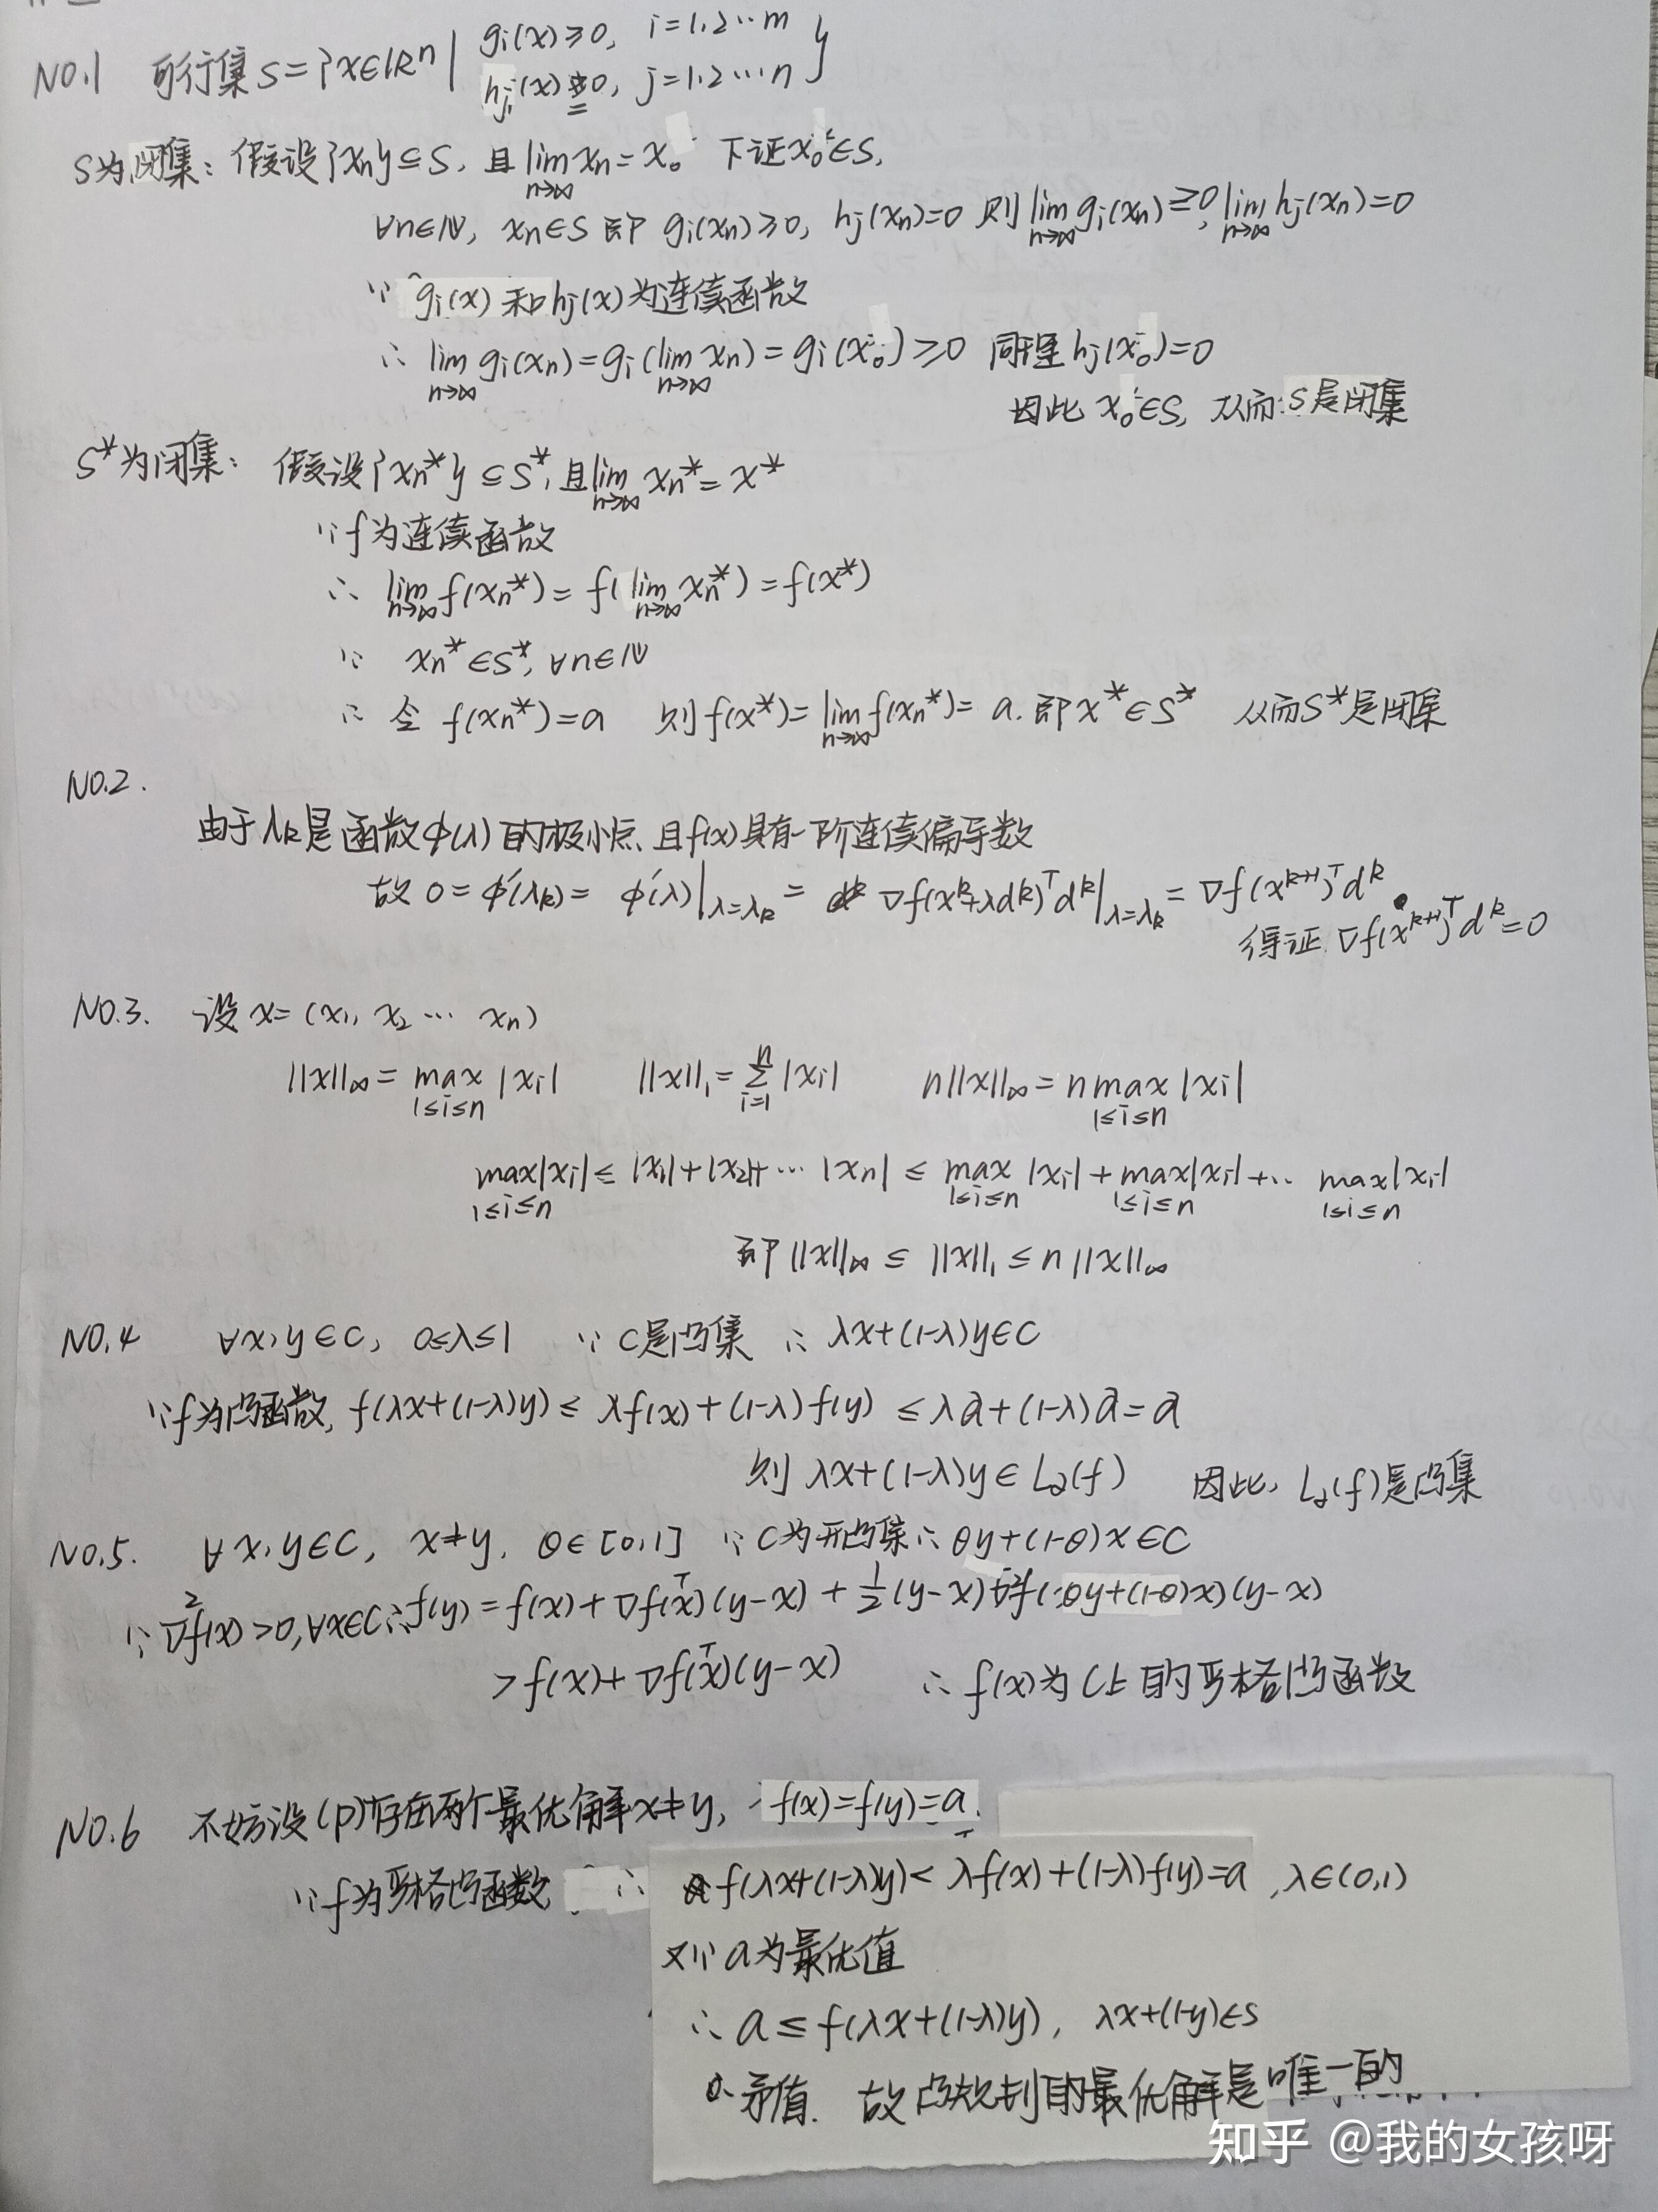 NO.1 可行集 S={x∈ℝⁿ | gᵢ(x)≥0, i=1,2…m
hⱼ(x)=0, j=1,2…n }
S为闭集: 假设{xn}⊆S, 且 lim(n→∞) xn=x₀ 下证x₀∈S,
∀n∈ℕ, xn∈S 即 gᵢ(xn)≥0, hⱼ(xn)=0 则 lim(n→∞) gᵢ(xn)≥0, lim(n→∞) hⱼ(xn)=0
∵ gᵢ(x)和hⱼ(x)为连续函数
∴ lim(n→∞) gᵢ(xn)=gᵢ(lim(n→∞) xn)=gᵢ(x₀)≥0 同理 hⱼ(x₀)=0
因此 x₀∈S, 从而 S是闭集
S*为闭集: 假设{xn*}⊆S*, 且 lim(n→∞) xn*=x*
∵f为连续函数
∴ lim(n→∞) f(xn*)=f(lim(n→∞) xn*)=f(x*)
∵ xn*∈S*, ∀n∈ℕ
∴ 令 f(xn*)=a 则f(x*)=lim(n→∞) f(xn*)=a. 即x*∈S* 从而S*是闭集
NO.2.
由于λk是函数φ(λ)的极小点, 且f(x)具有一阶连续偏导数
故 0=φ′(λk)=φ′(λ)|λ=λk = ∇f(xᵏ+λdᵏ)ᵀdᵏ|λ=λk = ∇f(xᵏ⁺¹)ᵀdᵏ
得证. ∇f(xᵏ⁺¹)ᵀdᵏ=0
NO.3. 设 x=(x₁, x₂ … xn)
||x||∞=max(1≤i≤n) |xi| ||x||₁=∑(i=1→n) |xi| n||x||∞=n max(1≤i≤n) |xi|
max(1≤i≤n)|xi|≤|x₁|+|x₂|+…|xn|≤max(1≤i≤n)|xi|+max(1≤i≤n)|xi|+… max(1≤i≤n)|xi|
即 ||x||∞≤||x||₁≤n||x||∞
NO.4 ∀x,y∈C, 0≤λ≤1 ∵C是凸集 ∴ λx+(1-λ)y∈C
∵f为凸函数, f(λx+(1-λ)y)≤λf(x)+(1-λ)f(y)≤λa+(1-λ)a=a
则 λx+(1-λ)y∈La(f) 因此, La(f)是凸集
NO.5. ∀x,y∈C, x≠y, θ∈[0,1] ∵C为开凸集∴θy+(1-θ)x∈C
∵∇²f(x)>0,∀x∈C∴f(y)=f(x)+∇f(x)ᵀ(y-x)+½(y-x)ᵀ∇²f(θy+(1-θ)x)(y-x)
>f(x)+∇f(x)ᵀ(y-x) ∴f(x)为C上的严格凸函数
NO.6 不妨设(P)存在两个最优解x≠y, f(x)=f(y)=a.
∵f为严格凸函数 ∴ f(λx+(1-λ)y)<λf(x)+(1-λ)f(y)=a ,λ∈(0,1)
又∵a为最优值
∴ a≤f(λx+(1-λ)y), λx+(1-y)∈S
矛盾. 故凸规划的最优解是唯一的
知乎 @我的女孩呀